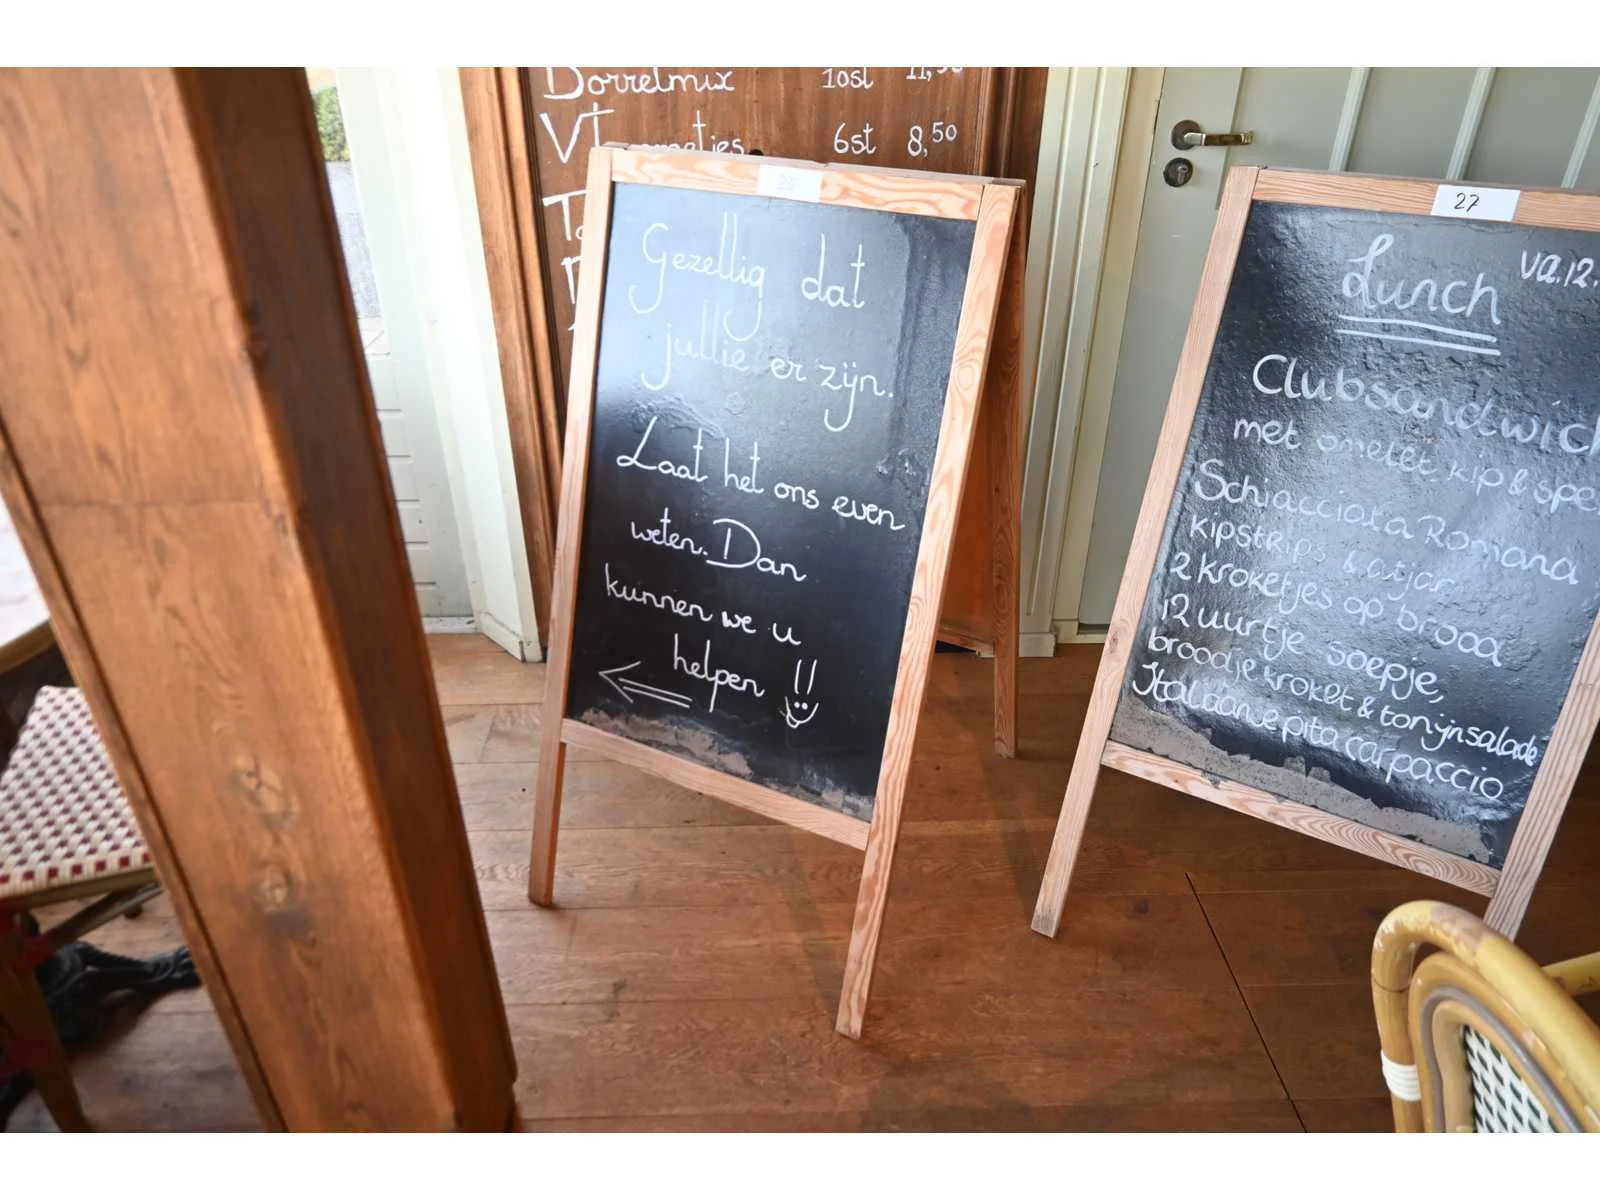 Borrelmix 10st 11,50
6st 8,50
26
Gezellig dat
jullie er zijn.
Laat het ons even
weten. Dan
kunnen we u
helpen !!
27
Lunch va. 12.
Clubsandwich
met omelet, kip & spe
Schiacciata Romana
kipstrips & atjar
2 kroketjes op brood
12 uurtje soepje,
broodje kroket & tonijnsalade
Italiaanse pita carpaccio